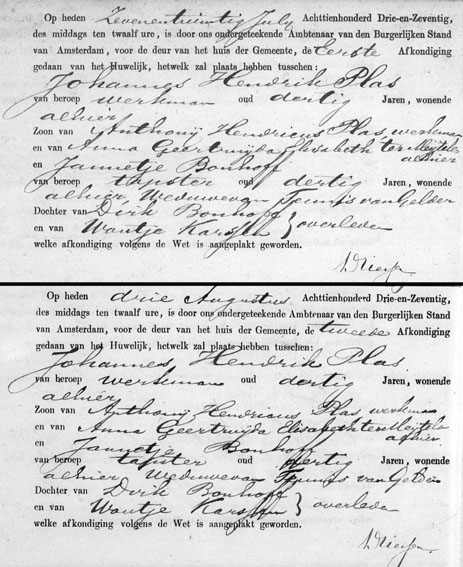 Op heden Zevenentwintig July Achttienhonderd Drie-en-Zeventig,
des middags ten twaalf ure, is door ons ondergeteekende Ambtenaar van den Burgerlijken Stand
van Amsterdam, voor de deur van het huis der Gemeente, de Eerste Afkondiging
gedaan van het Huwelijk, hetwelk zal plaats hebben tusschen:
Johannes Hendrik Plas
van beroep werkman oud dertig Jaren, wonende
alhier
Zoon van Anthonij Hendricus Plas, werkman
en van Anna Geertruijda Elisabeth
alhier
en Jannetje Bonhoff
van beroep tapster oud dertig Jaren, wonende
alhier Weduwe van Teunis van Gelder
Dochter van Dirk Bonhoff
en van Woutje Karssen } overleden
welke afkondiging volgens de Wet is aangeplakt geworden.
Op heden drie Augustus Achttienhonderd Drie-en-Zeventig,
des middags ten twaalf ure, is door ons ondergeteekende Ambtenaar van den Burgerlijken Stand
van Amsterdam, voor de deur van het huis der Gemeente, de tweede Afkondiging
gedaan van het Huwelijk, hetwelk zal plaats hebben tusschen:
Johannes Hendrik Plas
van beroep werkman oud dertig Jaren, wonende
alhier
Zoon van Anthonij Hendricus Plas werkman
en van Anna Geertruijda Elisabeth
alhier
en Jannetje Bonhoff
van beroep tapster oud dertig Jaren, wonende
alhier Weduwe van Teunis van Gelder
Dochter van Dirk Bonhoff
en van Woutje Karssen } overleden
welke afkondiging volgens de Wet is aangeplakt geworden.